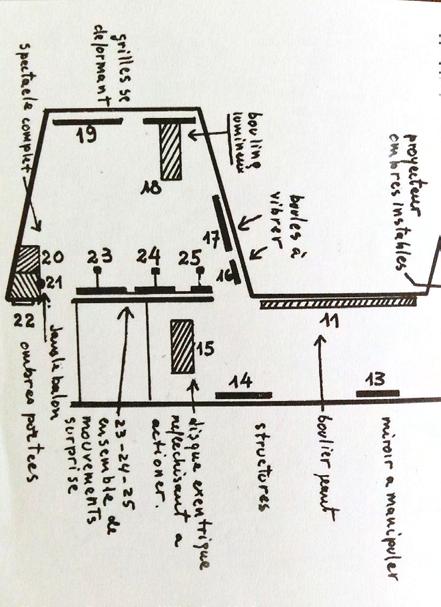 grilles se
deformant
spectacle complet
bouling
lumineux
boules à
vibrer
proyecteur
ombres instables
19
18
17
16
20
21
22
23
24
25
15
11
14
13
balon
ombres portées
23-24-25
ensemble de
mouvements
surprise
disque exentrique
reflechissant a
actioner.
structures
boulier
miroir a manipuler